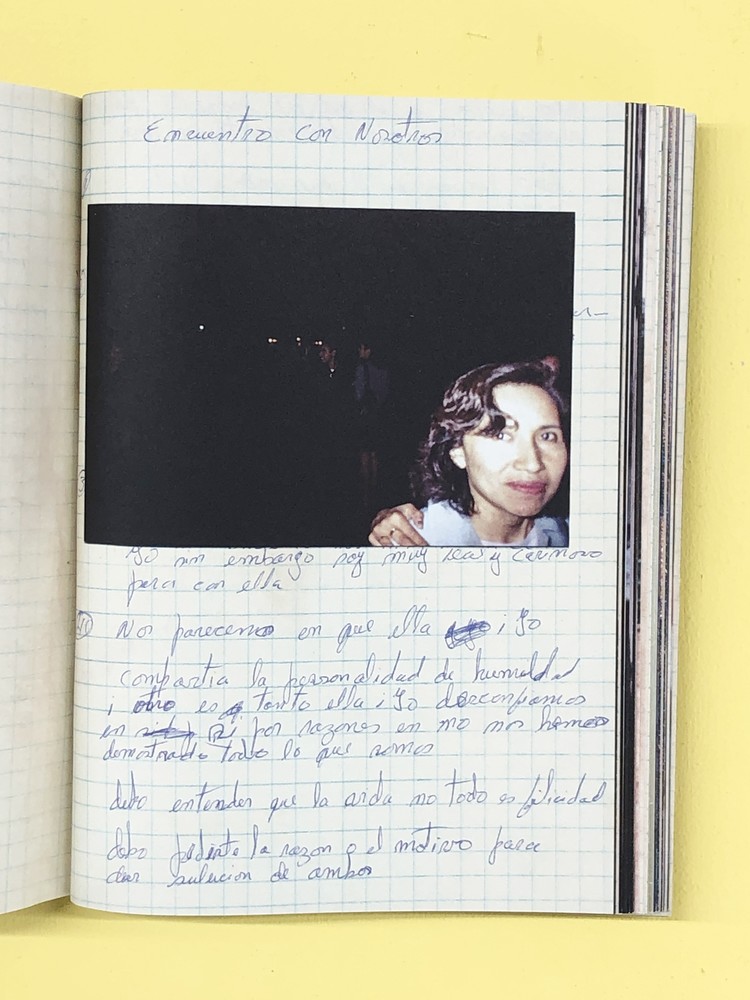 Encuentro con Nosotros
Yo sin embargo soy muy y cariñoso
para con ella
Nos parecemos en que ella i Yo
compartia la personalidad de humildad
i otro es q tanto ella i Yo desconfiamos
en si por razones en no nos hemos
demostrado todo lo que somos
debo entender que la no todo es filicidad
debo la razon o el motivo para
dar solucion de ambos